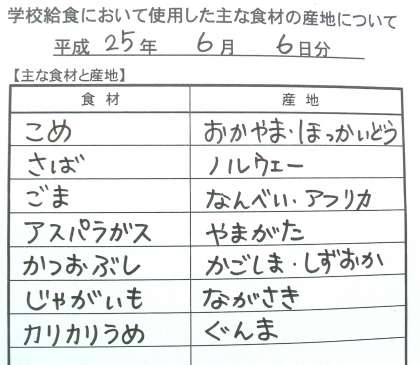 学校給食において使用した主な食材の産地について
平成 25 年 6 月 6 日分
【主な食材と産地】
食材 産地
こめ おかやま・ほっかいどう
さば ノルウェー
ごま なんべい・アフリカ
アスパラガス やまがた
かつおぶし かごしま・しずおか
じゃがいも ながさき
カリカリうめ ぐんま